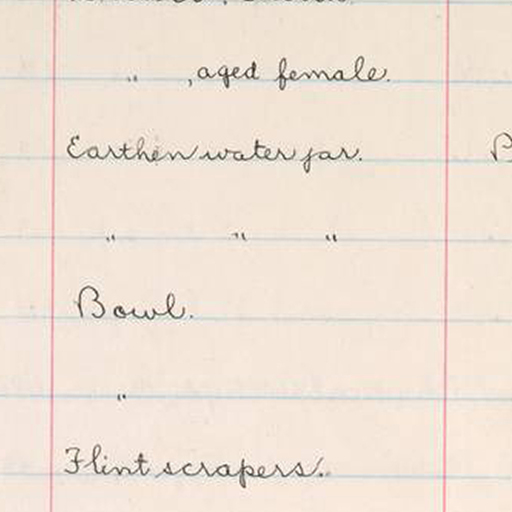 " , aged female.
Earthen water jar.
" " "
Bowl.
"
Flint scrapers.